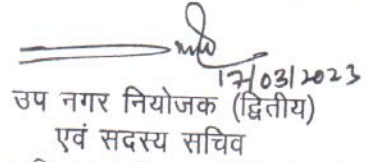 17/03/2023
उप नगर नियोजक (द्वितीय)
एवं सदस्य सचिव